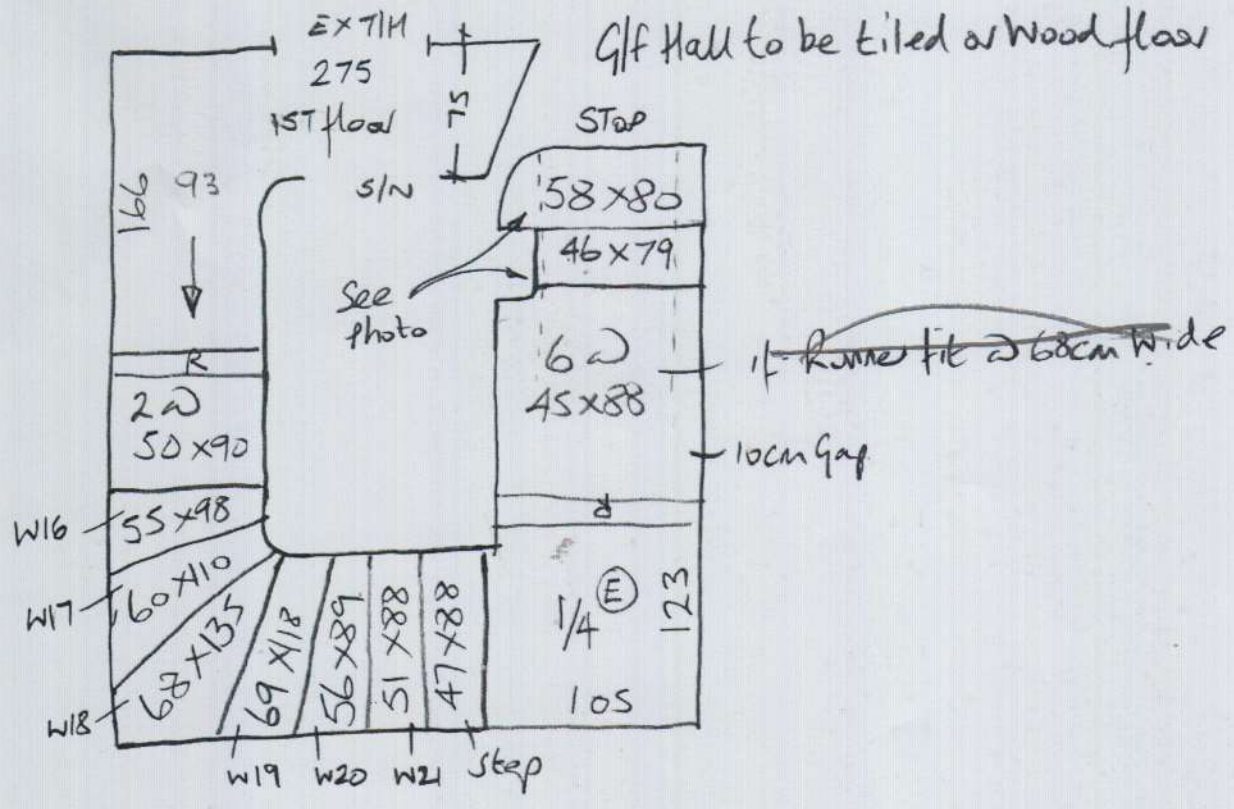 EXT/H
275
1ST floor
75
G/f Hall to be tiled or Wood floor
STOP
166
93
S/N
58 x 80
46 x 79
See
photo
6 @
45 x 88
If Runner fit @ 68cm Wide
10cm Gap
R
2 @
50 x 90
R
W16
55 x 98
W17
60 x 110
W18
68 x 135
69 x 118
56 x 89
51 x 88
47 x 88
1/4 E
123
105
W19
W20
W21
Step